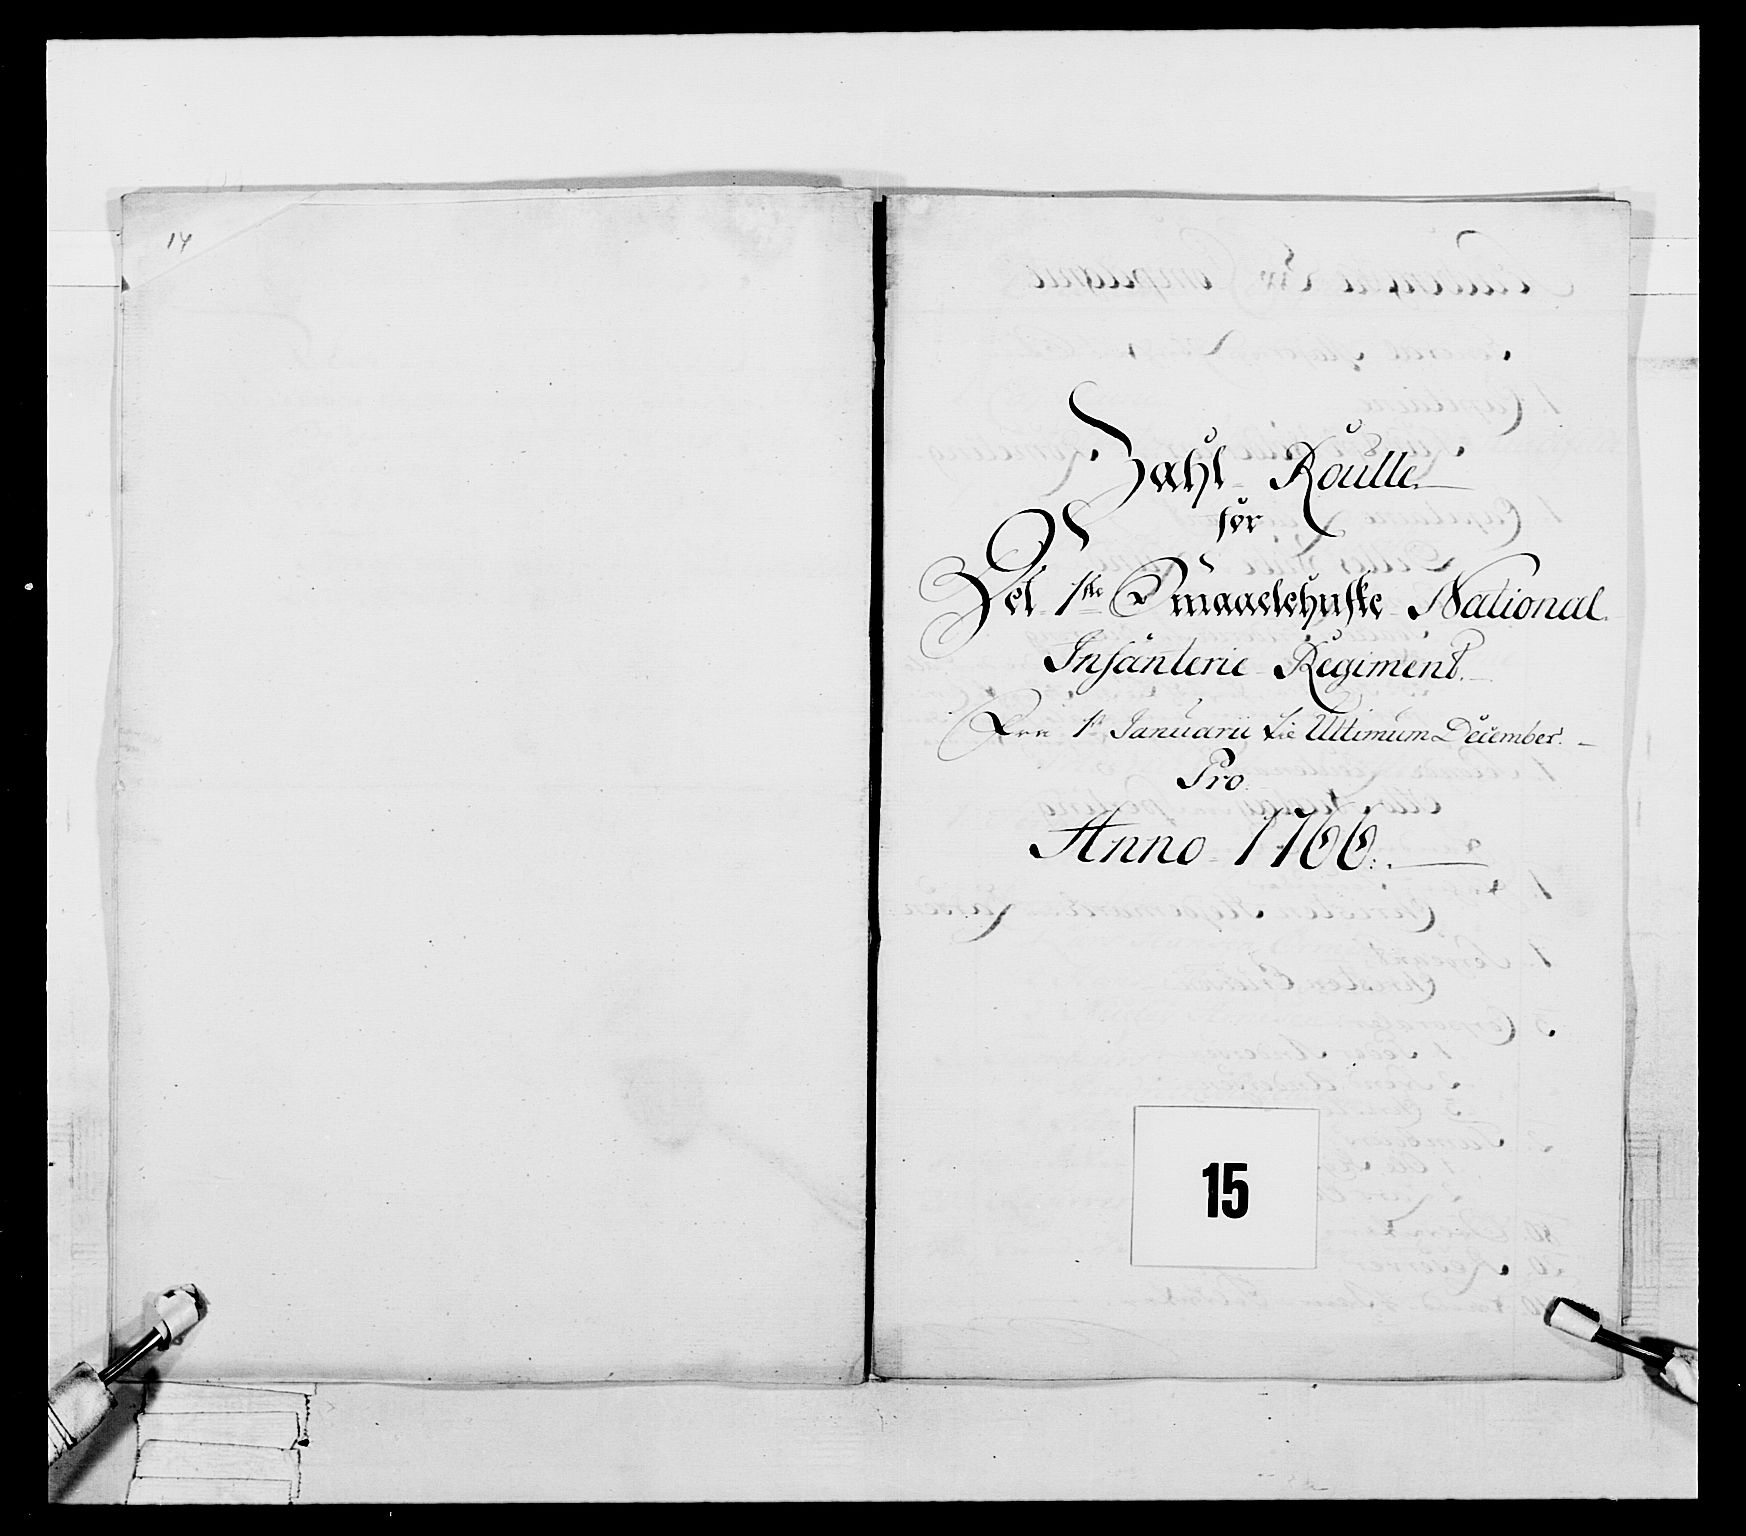 14
Zahl Roulle
for
Det 1ste Smaaelehnske National
Infanterie Regiment.
Fra 1ste Januarii til Ultimum December.
Pro
Anno 1766.
15